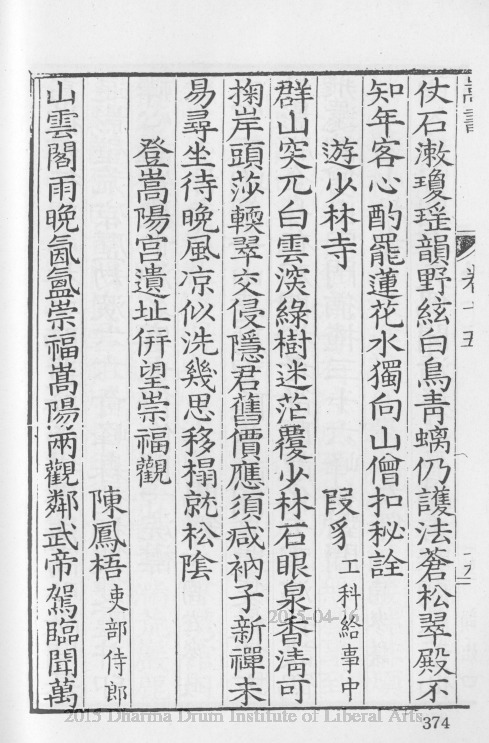 嵩書
卷十五
仗石漱瓊瑤韻野絃白鳥青螭仍護法蒼松翠殿不
知年客心酌罷蓮花水獨向山僧扣秘詮
遊少林寺
叚豸 工科給事中
群山突兀白雲深綠樹迷茫覆少林石眼泉香清可
掬岸頭莎輭翠交侵隱君舊價應須减衲子新禪未
易尋坐待晚風凉似洗幾思移榻就松陰
登嵩陽宫遺址倂望崇福觀
陳鳳梧 吏部侍郎
山雲閣雨晚氤氳崇福嵩陽兩觀鄰武帝駕臨聞萬
2015-04-16
2015 Dharma Drum Institute of Liberal Arts
374